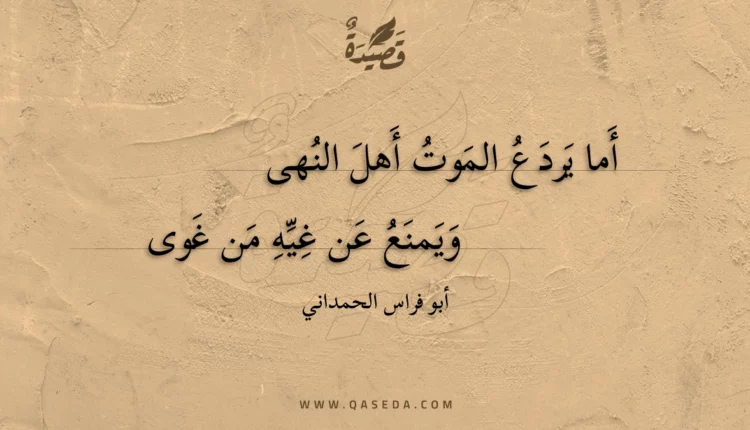 قَصِيدَةٌ
أَما يَردَعُ المَوتُ أَهلَ النُهى
وَيَمنَعُ عَن غِيِّهِ مَن غَوى
أبو فراس الحمداني
WWW.QASEDA.COM